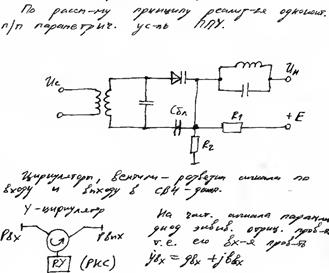 По расс-му принципу реализ-ся одноконт.
п/п параметрич. ус-ль ППУ.
Uс
Uн
Cбл
R1
+ E
R2
Циркуляторы, вентили - развязка сигнала по
входу и выходу в СВЧ-диап.
Y-циркулятор
Pвх
Pвых
РУ (РКС)
На част. сигнала парамп.
диод экв. отриц. пров-ть
т.е. его вх-я пров-ть
Yвх = gвх + jbвх